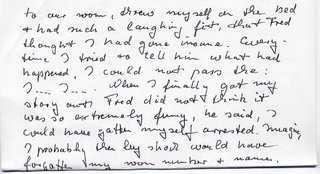 to our room, threw myself on the bed
& had such a laughing fit, that Fred
thought I had gone insane. Every-
time I tried to tell him what had
happened, I could not pass the:
I.... I.... When I finally got my
story out, Fred did not think it
was so extremely funny, he said, I
could have gotten myself arrested. Imagine,
I probably then by shock would have
forgotten my room number & name.